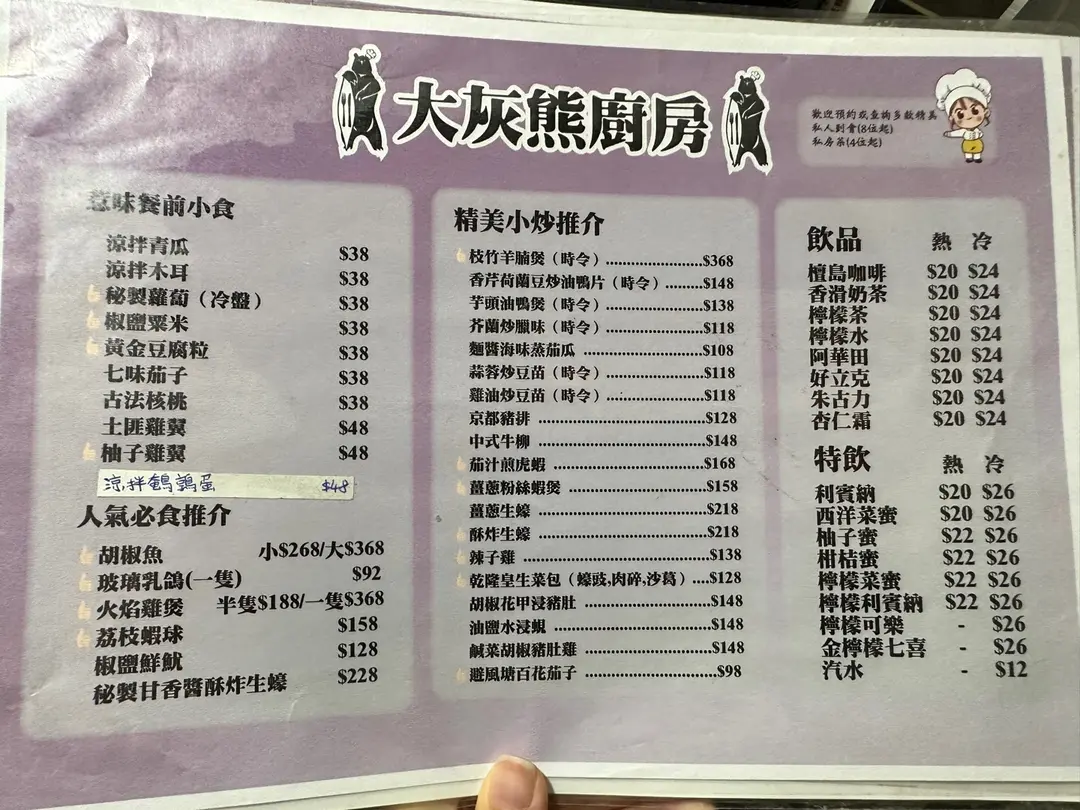 大灰熊廚房
歡迎預約或查詢多款精美
私人到會(8位起)
私房菜(4位起)
惹味餐前小食
涼拌青瓜 $38
涼拌木耳 $38
秘製蘿蔔（冷盤） $38
椒鹽粟米 $38
黃金豆腐粒 $38
七味茄子 $38
古法核桃 $38
土匪雞翼 $48
柚子雞翼 $48
涼拌鵪鶉蛋 $48
人氣必食推介
胡椒魚 小$268/大$368
玻璃乳鴿(一隻) $92
火焰雞煲 半隻$188/一隻$368
荔枝蝦球 $158
椒鹽鮮魷 $128
秘製甘香醬酥炸生蠔 $228
精美小炒推介
枝竹羊腩煲（時令）......................$368
香芹荷蘭豆炒油鴨片（時令）.........$148
芋頭油鴨煲（時令）......................$138
芥蘭炒臘味（時令）......................$118
麵醬海味蒸茄瓜 ...........................$108
蒜蓉炒豆苗（時令）......................$118
雞油炒豆苗（時令）......................$118
京都豬排 ......................................$128
中式牛柳 ......................................$148
茄汁煎虎蝦 ..................................$168
薑蔥粉絲蝦煲 ...............................$158
薑蔥生蠔 ......................................$218
酥炸生蠔 ......................................$218
辣子雞 .........................................$138
乾隆皇生菜包（蠔豉,肉碎,沙葛）....$128
胡椒花甲浸豬肚 ...........................$148
油鹽水浸蜆 ..................................$148
鹹菜胡椒豬肚雞 ...........................$148
避風塘百花茄子 ...........................$98
飲品 熱 冷
檀島咖啡 $20 $24
香滑奶茶 $20 $24
檸檬茶 $20 $24
檸檬水 $20 $24
阿華田 $20 $24
好立克 $20 $24
朱古力 $20 $24
杏仁霜 $20 $24
特飲 熱 冷
利賓納 $20 $26
西洋菜蜜 $20 $26
柚子蜜 $22 $26
柑桔蜜 $22 $26
檸檬菜蜜 $22 $26
檸檬利賓納 $22 $26
檸檬可樂 - $26
金檸檬七喜 - $26
汽水 - $12